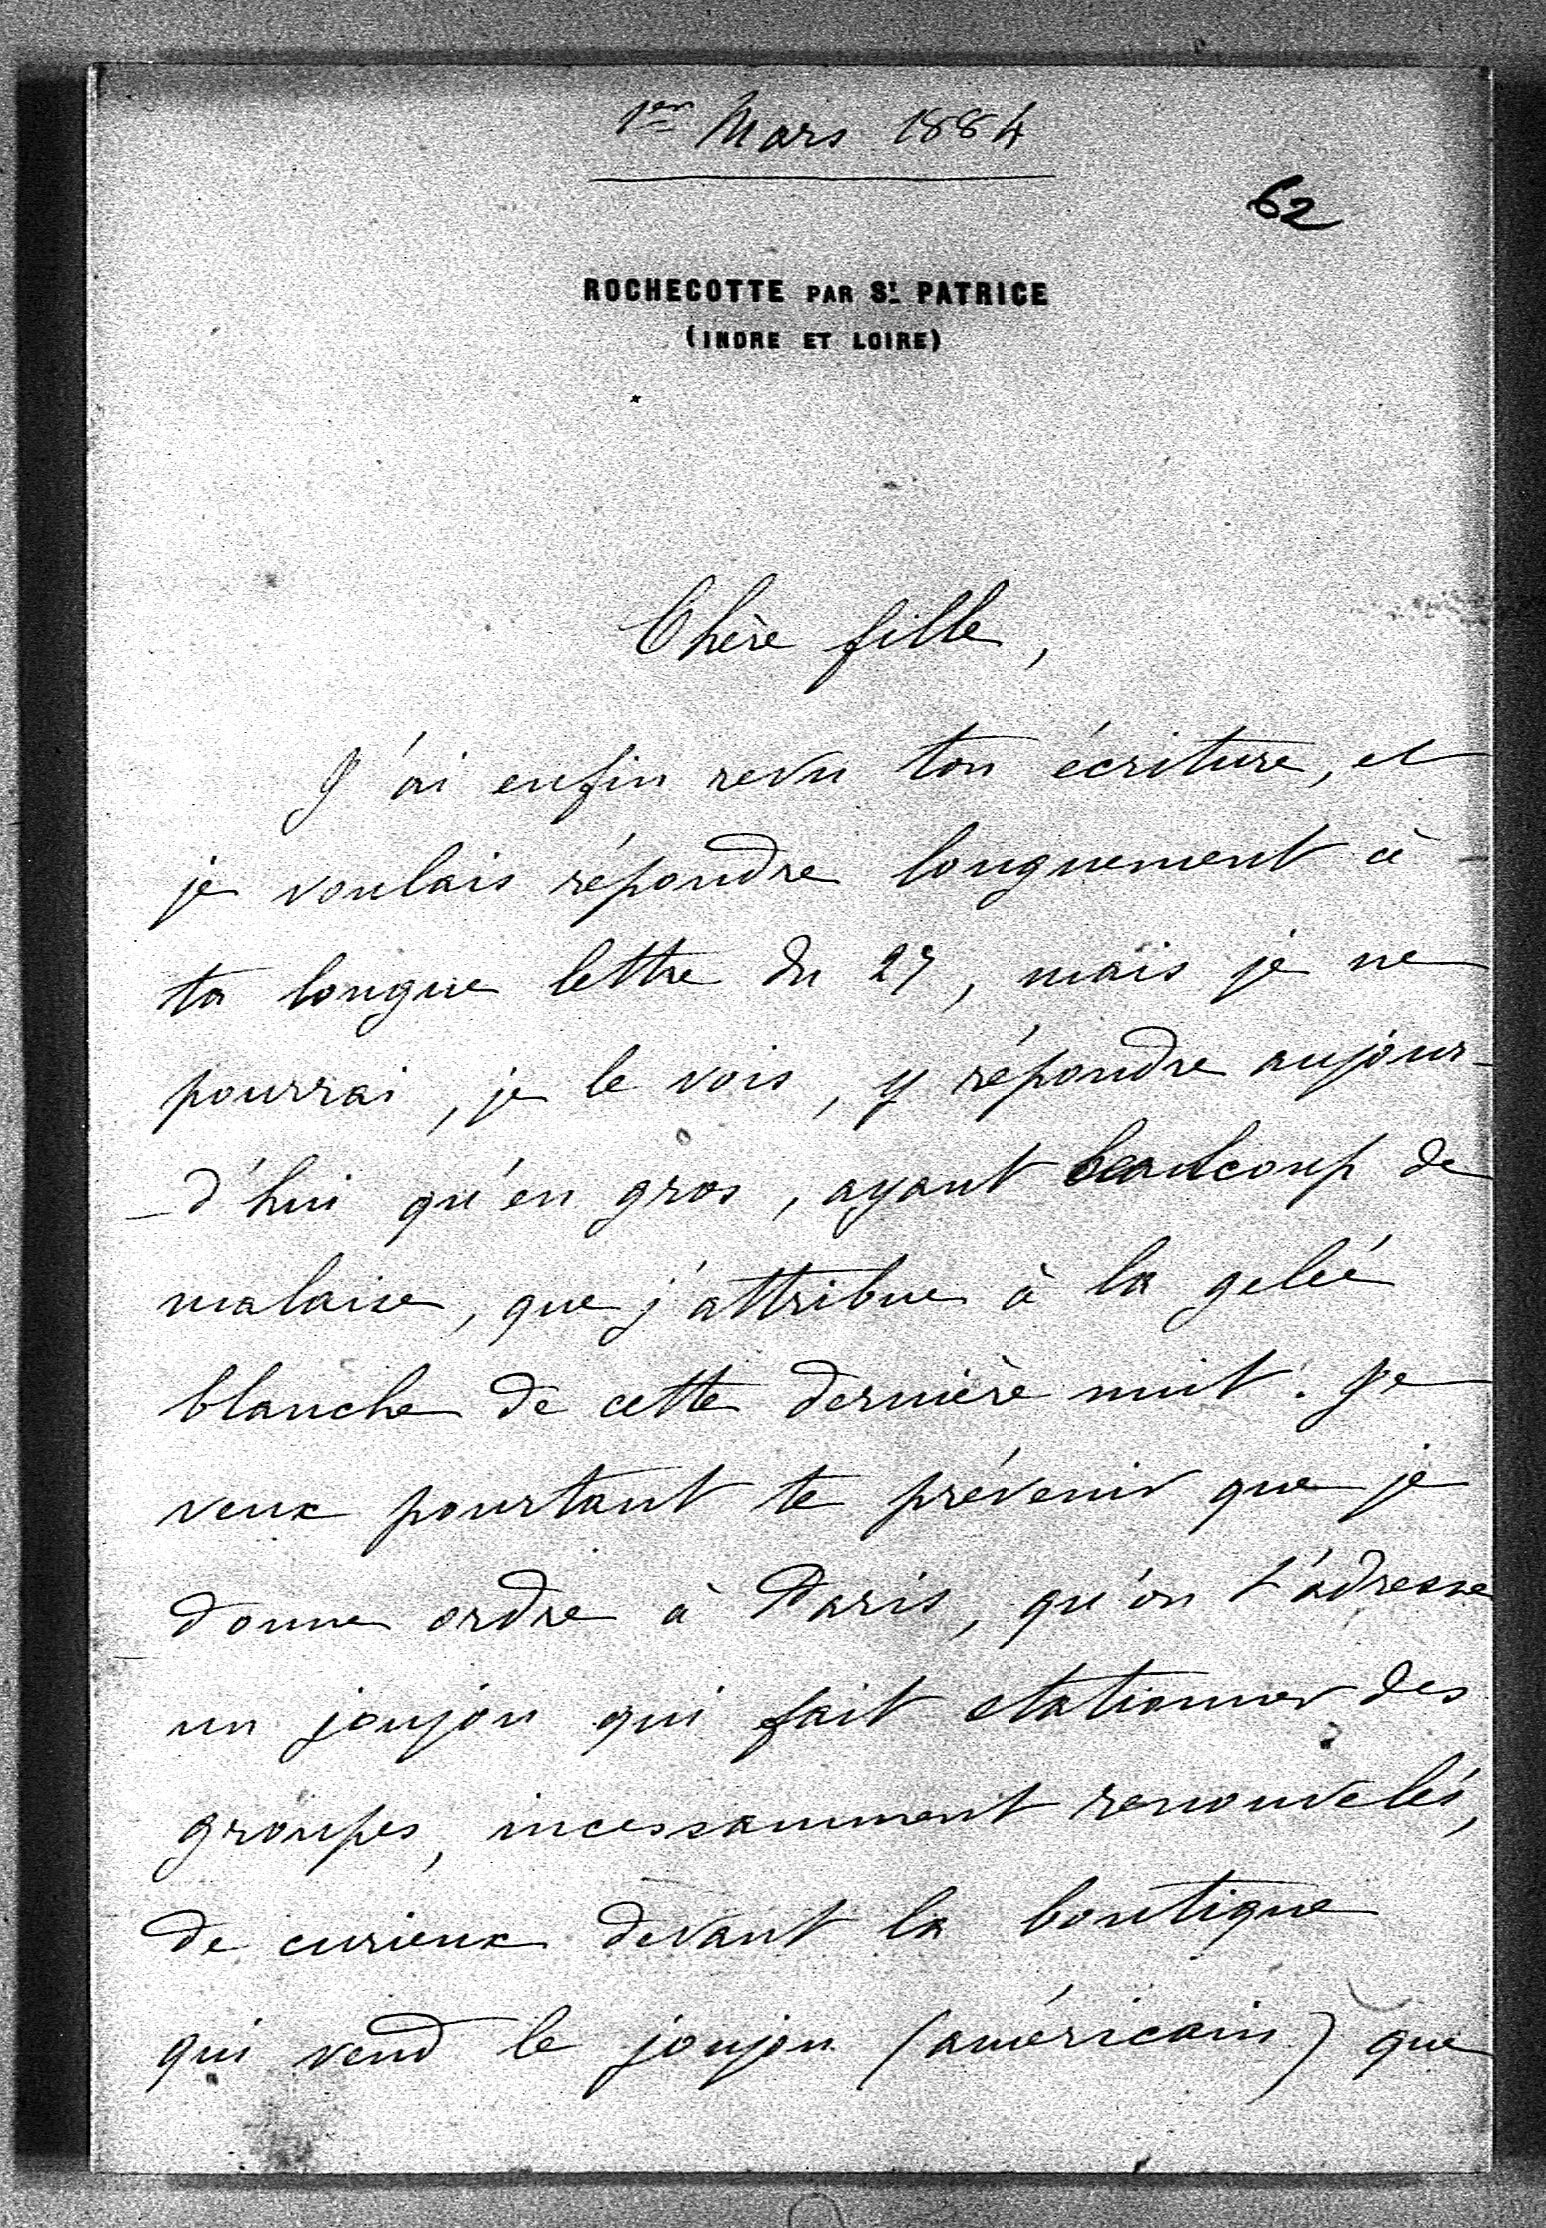 1er Mars 1884
62
ROCHECOTTE PAR ST. PATRICE
(INDRE ET LOIRE)
Chère fille,
J'ai enfin revu ton écriture, et
je voulais répondre longuement à
ta longue lettre du 27, mais je ne
pourrai, je le vois, y répondre aujour-
-d'hui qu'en gros, ayant beaucoup de
malaise, que j'attribue à la gelée
blanche de cette dernière nuit. Je
veux pourtant te prévenir que je
donne ordre à Paris, qu'on t'adresse
un joujou qui fait stationner des
groupes, incessamment renouvelés,
de curieux devant la boutique
qui vend le joujou (américain) que